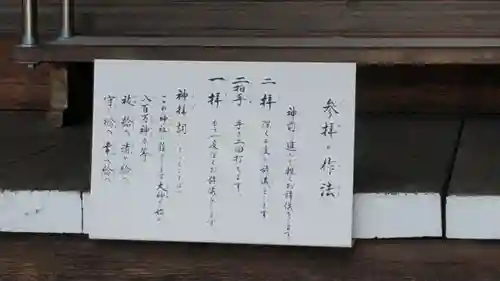 参拝の作法
神前に進んで軽くお辞儀をします
二拝 深く二度お辞儀をします
二拍手 手を二回打ちます
一拝 もう一度深くお辞儀をします
神拝詞
この神社に鎮まります大神を始め
八百万神の等
祓へ給へ清め給へ
守り給へ幸へ給へ